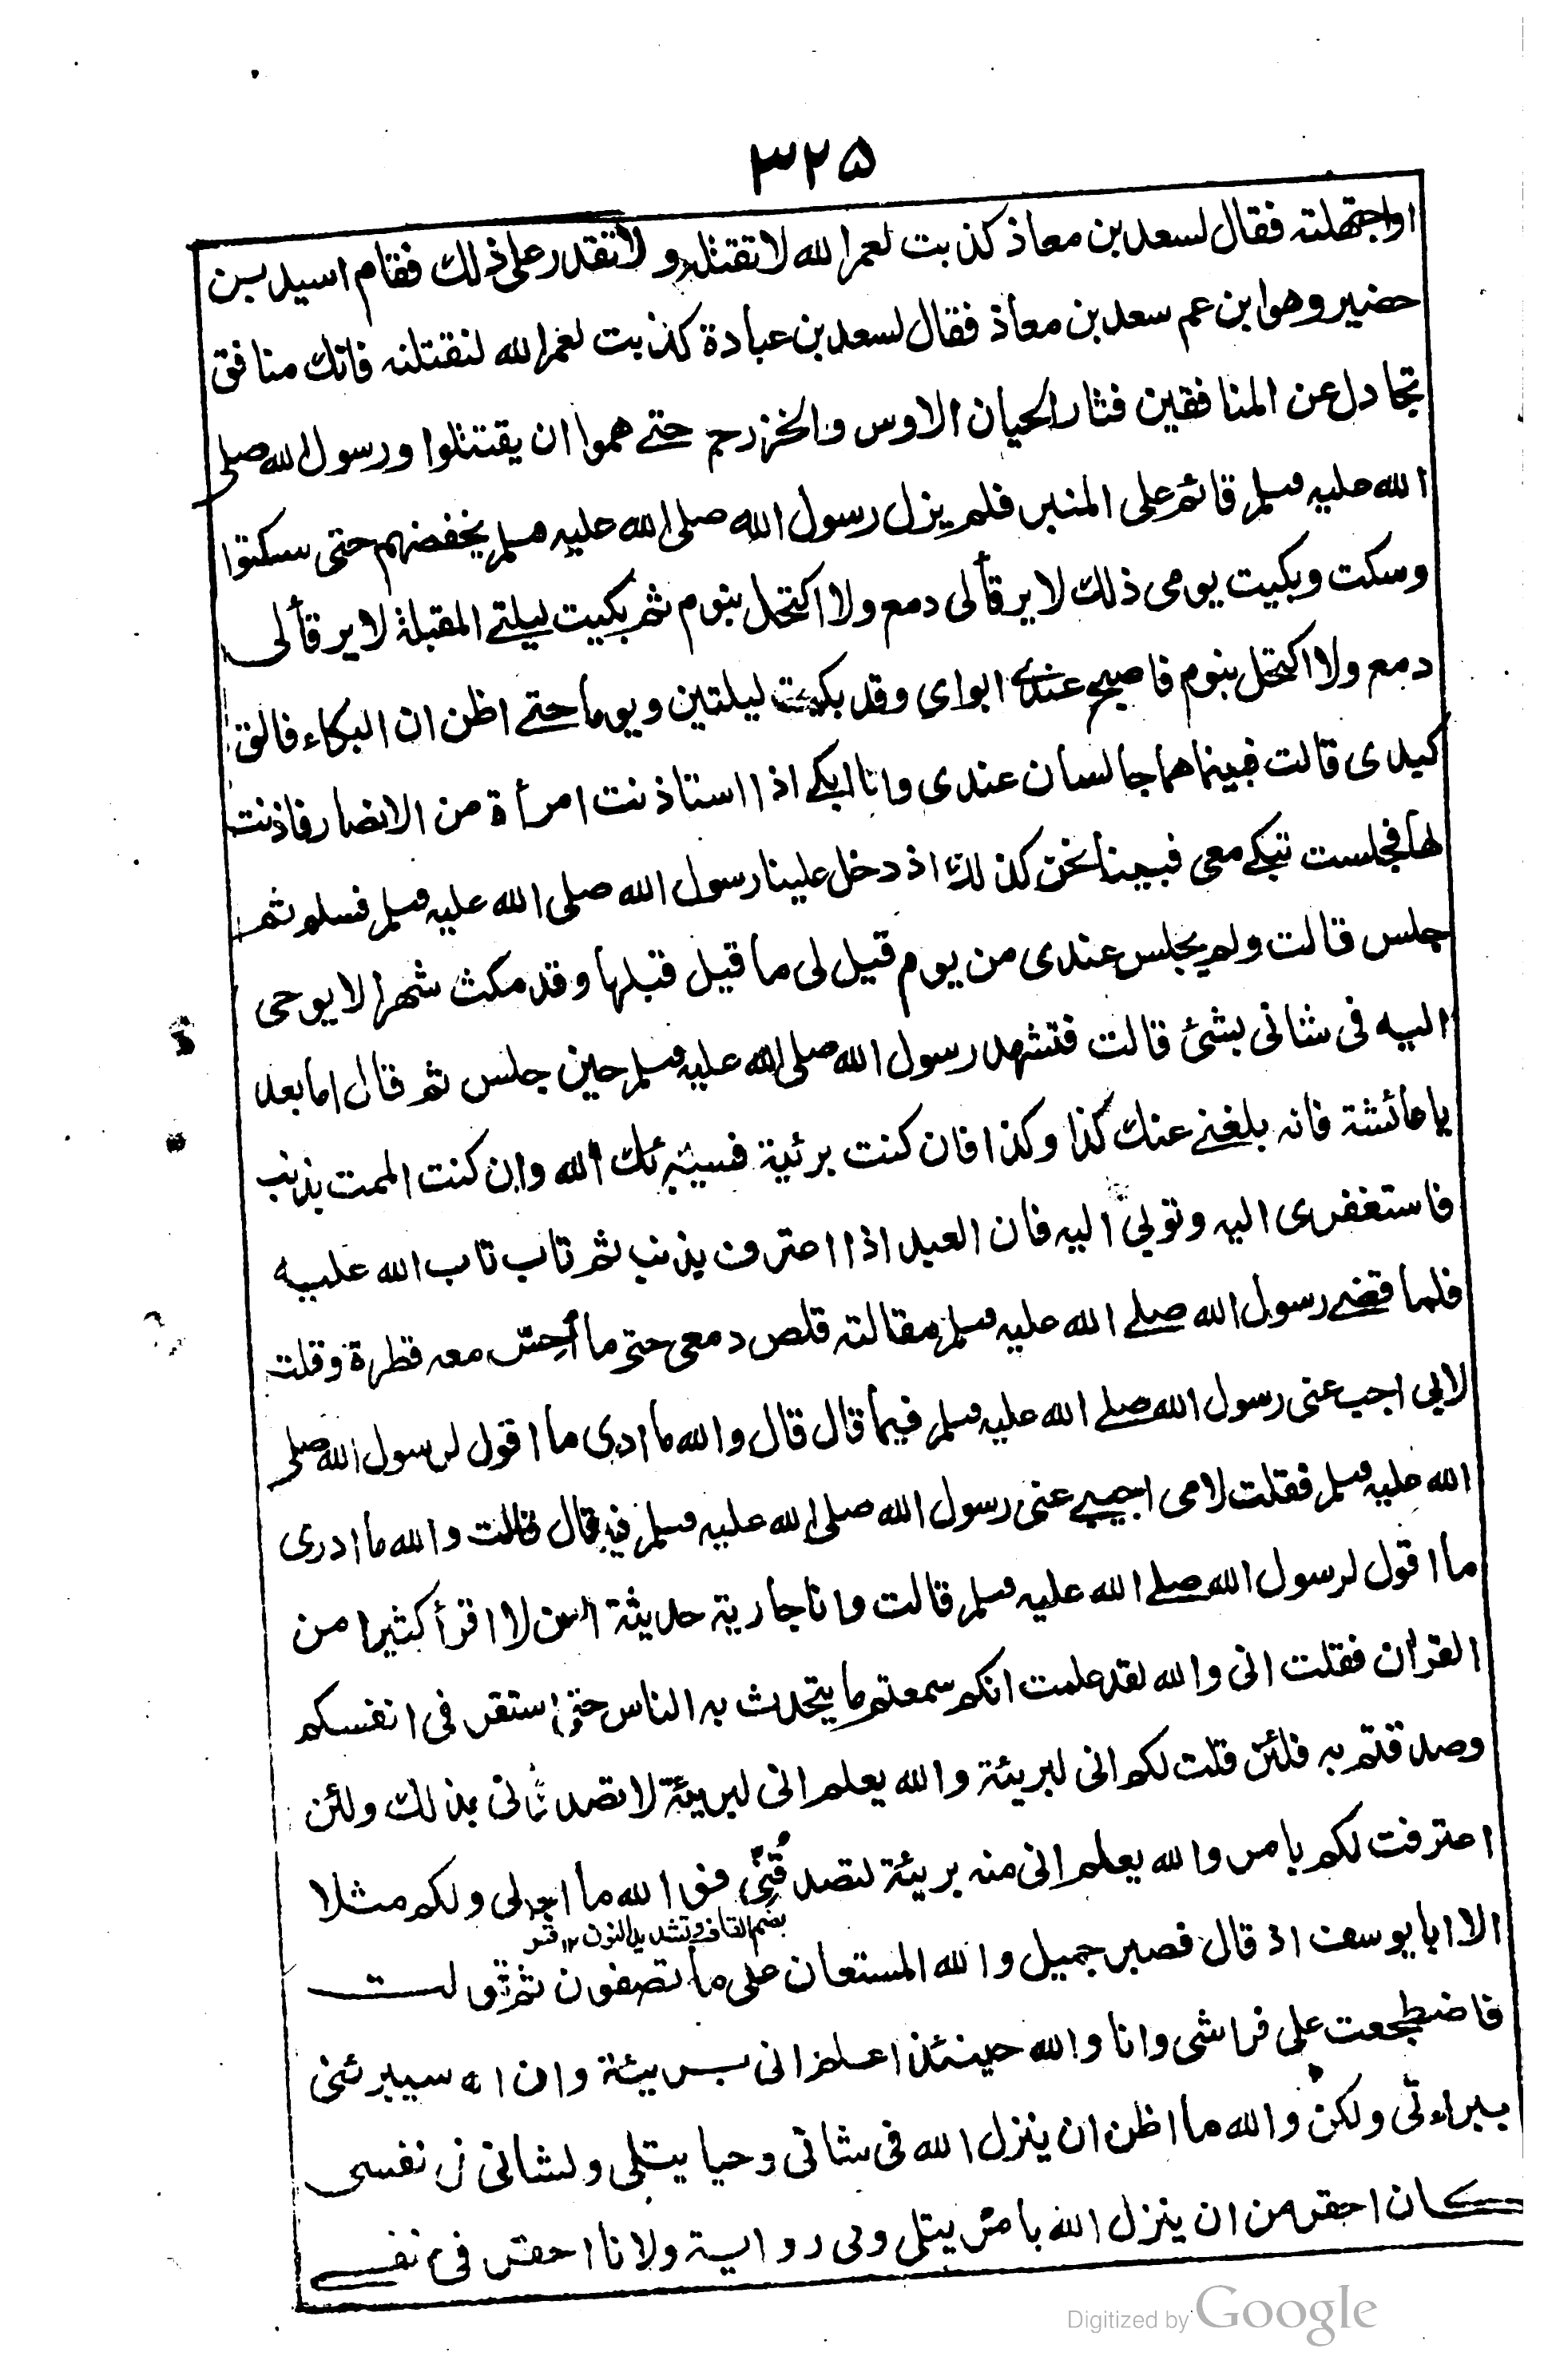 ٣٢٥
او اجتهلته فقال لسعد بن معاذ كذبت لعمر الله لا تقتله و لا تقدر على ذلك فقام اسيد بن
حضير وهو ابن عم سعد بن معاذ فقال لسعد بن عبادة كذبت لعمر الله لنقتلنه فانك منافق
تجادل عن المنافقين فثار الحيان الاوس والخزرج حتى هموا ان يقتتلوا ورسول الله صلى
الله عليه وسلم قائم على المنبر فلم يزل رسول الله صلى الله عليه وسلم يخفضهم حتى سكتوا
وسكت وبكيت يومى ذلك لا يرقأ لى دمع ولا اكتحل بنوم ثم بكيت ليلتى المقبلة لا يرقأ لى
دمع ولا اكتحل بنوم فاصبح عندى ابواى وقد بكيت ليلتين ويوما حتى اظن ان البكاء فالق
كبدى قالت فبينما هما جالسان عندى وانا ابكى اذا استاذنت امرأة من الانصار فاذنت
لها فجلست تبكى معى فبينا نحن كذلك اذ دخل علينا رسول الله صلى الله عليه وسلم فسلم ثم
جلس قالت ولم يجلس عندى من يوم قيل لى ما قيل قبلها وقد مكث شهرا لا يوحى
اليه فى شانى بشئ قالت فتشهد رسول الله صلى الله عليه وسلم حين جلس ثم قال اما بعد
يا عائشة فانه بلغنى عنك كذا وكذا فان كنت برئية فسيبرئك الله وان كنت الممت بذنب
فاستغفرى اليه وتوبى اليه فان العبد اذا اعترف بذنب ثم تاب تاب الله عليه
فلما قضى رسول الله صلى الله عليه وسلم مقالته قلص دمعى حتى ما أُحِسّ معه قطرة وقلت
لابى اجب عنى رسول الله صلى الله عليه وسلم فيما قال قال والله ما ادرى ما اقول لرسول الله صلى
الله عليه وسلم فقلت لامى اجيبى عنى رسول الله صلى الله عليه وسلم فيما قال قالت والله ما ادرى
ما اقول لرسول الله صلى الله عليه وسلم قالت وانا جارية حديثة السن لا اقرأ كثيرا من
القران فقلت انى والله لقد علمت انكم سمعتم ما يتحدث به الناس حتى استقر فى انفسكم
وصدقتم به فلئن قلت لكم انى لبريئة والله يعلم انى لبريئة لا تصدقانى بذلك ولئن
اعترفت لكم بامر والله يعلم انى منه بريئة لتصدقُنّى فو الله ما اجد لى ولكم مثلا
بضم القاف وتشديد النون ١٢ قس
الا ابا يوسف اذ قال فصبر جميل والله المستعان على ما تصفون ثم تولت
فاضطجعت على فراشى وانا والله حينئذ اعلم انى بريئة وان الله سيبرئنى
ببراءتى ولكن والله ما اظن ان ينزل الله فى شانى وحيا يتلى ولشانى فى نفسى
كان احقر من ان ينزل الله بامر يتلى وفى رواية ولانا احقر فى نفسى
Digitized by Google